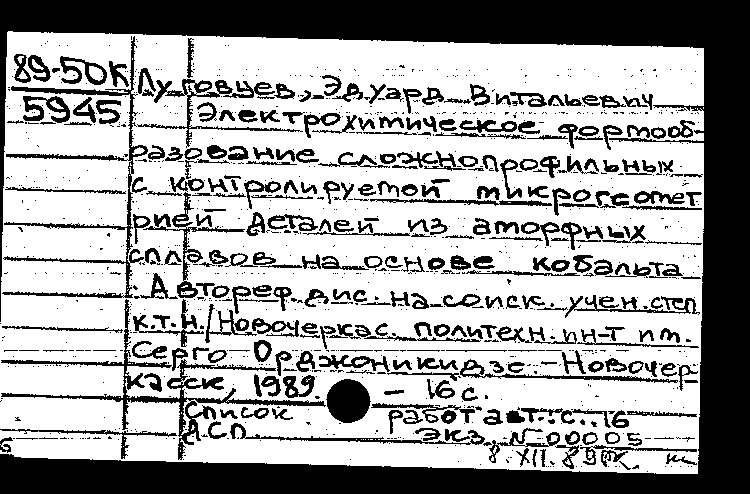 89-50К
5945
Луговцев, Эдуард Витальевич
Электрохимическое формооб-
разование сложнопрофильных
с контролируемой микрогеомет
рией деталей из аморфных
сплавов на основе кобальта
. Автореф. дис. на соиск. учен. степ
к.т.н./Новочеркас. политехн. ин-т им.
Серго Орджоникидзе. - Новочер-
касск, 1989. - 16 с.
Список работ авт.: с. 16
ДСП. экз. N 00005
8.XII.89